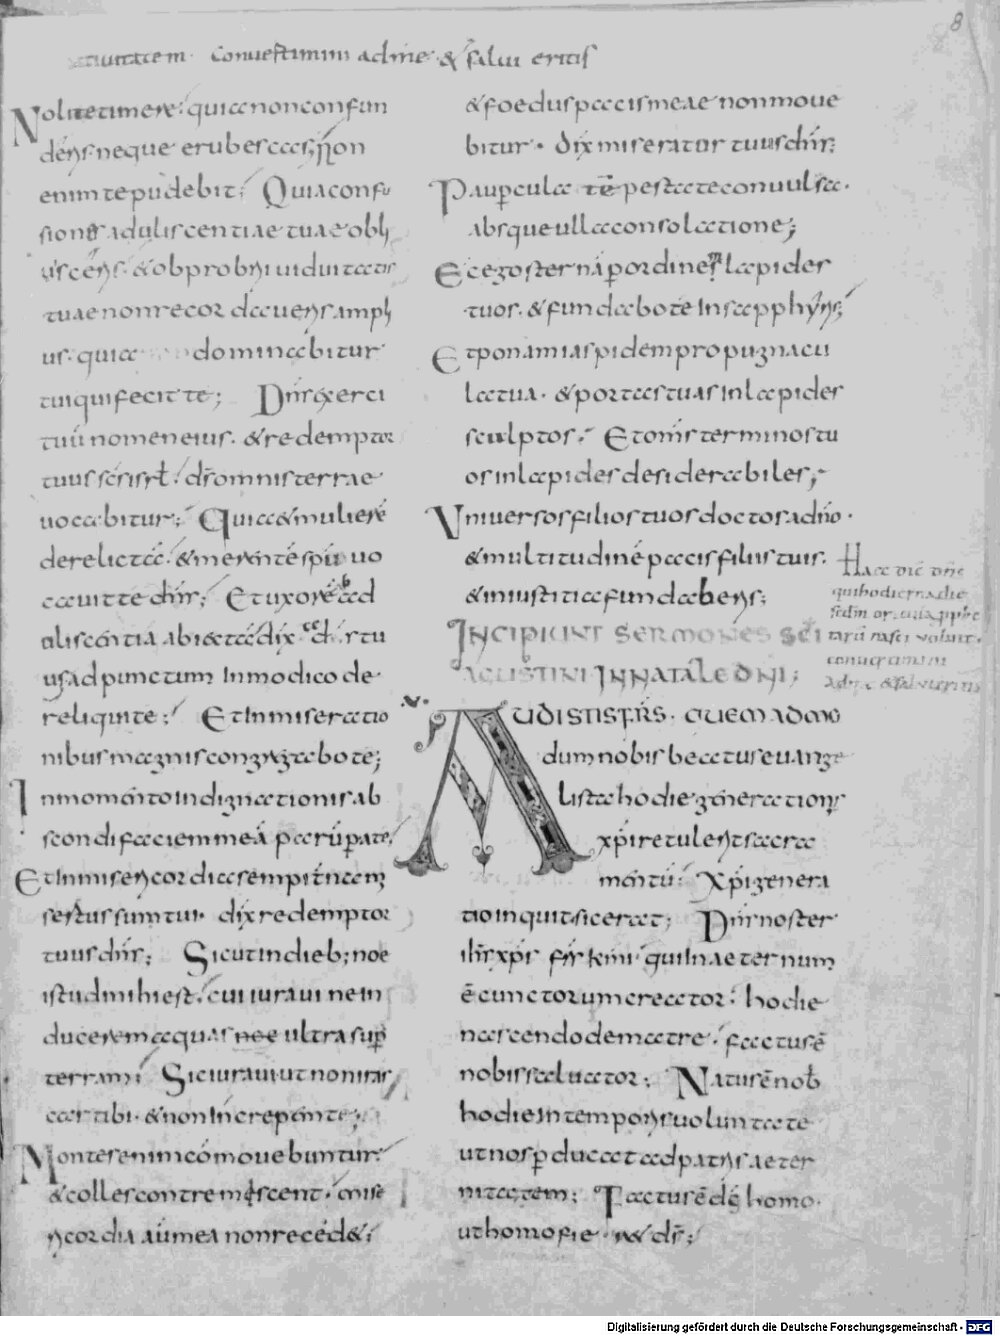 8
Convertimini ad me & salui eritis
Nolite timere quia non confun
deris neque erubesces; Non
enim te pudebit; Quia confu
sionis aduliscentiae tuae obli
uisceris & obprobrii uiduitatis
tuae non recordaueris ampli
us quia dominabitur
tui qui fecit te; Dn̄s exerci
tuū nomen eius. & redemptor
tuus sc̄s isrl̄. ds̄ omnis terrae
uocabitur; Quia & muliere
derelictā. & merentē sp̄u uo
cauit te dn̄s; Et uxorē ab ad
aliscentia abiectā dix̄ dn̄s tu
us ad punctum In modico de
reliqui te; Et In miseratio
nibus magnis congregabo te;
In momento indignationis ab
scondi faciem meā parūper a te.
Et In misericordia sempiterna m
sertus sum tui. dix̄ redemptor
tuus dn̄s; Sicut in dieb; noe
istud mihi est. cui iuraui ne in
ducerem aquas noe ultra sup̄
terram; Sic iuraui ut non iras
car tibi. & non Increpem te;
Montes enim cōmouebuntur.
& colles contremiscent. mise
ricordia aūt mea non recedet;
& foedus pacis meae non moue
bitur. dix̄ miserator tuus dn̄s;
Paupercula tēpestate conuulsa.
Absque ulla consolatione;
Ecce ego sternā p ordinem lapides
tuos. & fundabo te In sapphiris;
Et ponam iaspidem propugnacu
la tua. & portas tuas in lapides
sculptos. Et om̄s terminos tu
os in lapides desiderabiles;
Vniuersos filios tuos doctos a dn̄o.
& multitudinē pacis filiis tuis.
& in iustitia fundaberis;
INCIPIUNT SERMONES SC̄I
AGUSTINI IN NATALE DN̄I;
AUDISTIS FR̄S. QUEMADMO
dum nobis beatus euange
lista hodie generationis
xp̄i retulerit sacra
mentū. Xp̄i genera
tio inquit sic erat; Dn̄s noster
ih̄s xp̄s frs̄ km̄i qui In aeternum
ē cunctorum creator. hodie
nascendo de matre. factus ē
nobis saluator; Natus ē nob̄
hodie In tempore uoluntate
ut nos p ducat ad patris aeter
nitatem; Factus ē ds̄ homo.
ut homo fie ret ds̄;
Haec dic̄ dn̄s
Digitalisierung gefördert durch die Deutsche Forschungsgemeinschaft - DFG